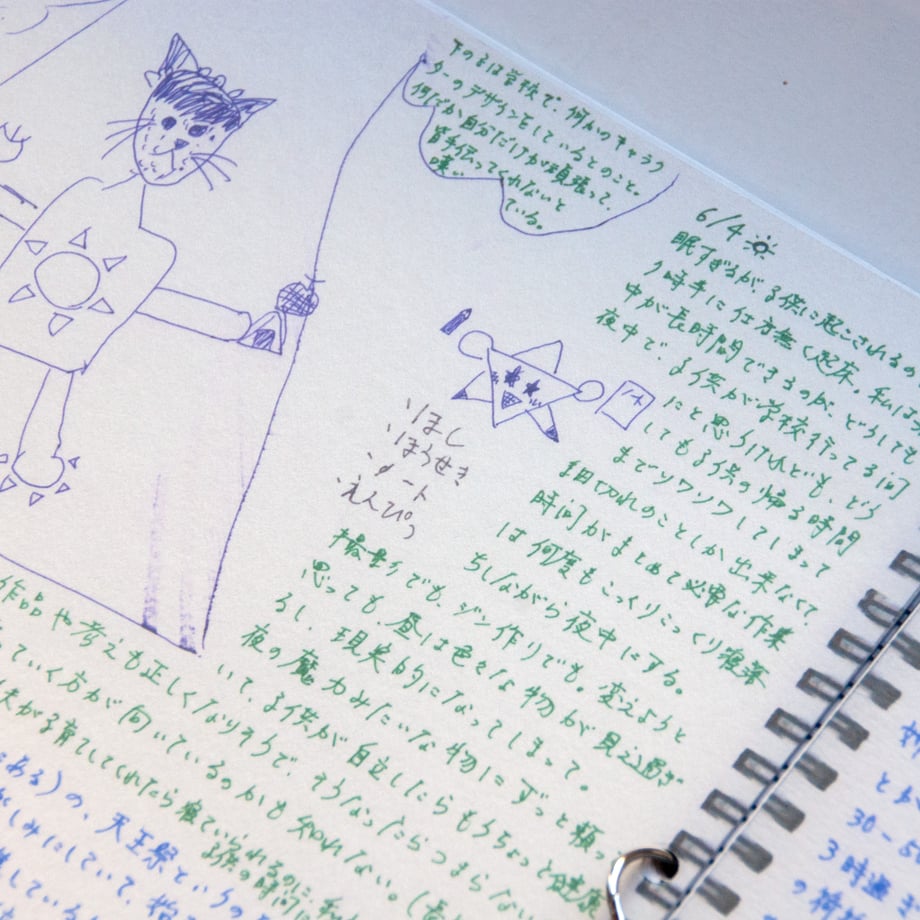 下の子は学校で、何かのキャラク
ターのデザインをしているとのこと。
何だか自分だけが頑張って、
皆手伝ってくれないと
嘆い
ている。
6/4
眠すぎるが、子供に起こされるの
時手に仕方無く起床。私は
中が長時間できるのが、どうしても
夜中で、子供が学校行ってる間
にと思うけれども、どう
しても子供の帰る時間
までソワソワしてしまって
細切れのことしか出来なくて、
時間がまとめて必要な作業
は何度もこっくりこっくり寝落
ちしながら夜中にする。
撮影でも、ジン作りでも。変えようと
思っても、昼は色々な物が見え過ぎ
るし、現実的になってしまって。
夜の魔力みたいな物にずっと頼っ
いて、子供が自立したらもうちょっと健康
作品や考えも正しくなりそうで、そうなったらつまらない
っていく方が向いているのかも知れない。
夫が子育てしてくれたら寝ていられるのに、
子供の時間に
ノート
・ほし
・ほうせき
・ノート
・えんぴつ
ある）の、天王祭という
しみにしていて、
している
と
30-5
3時
の